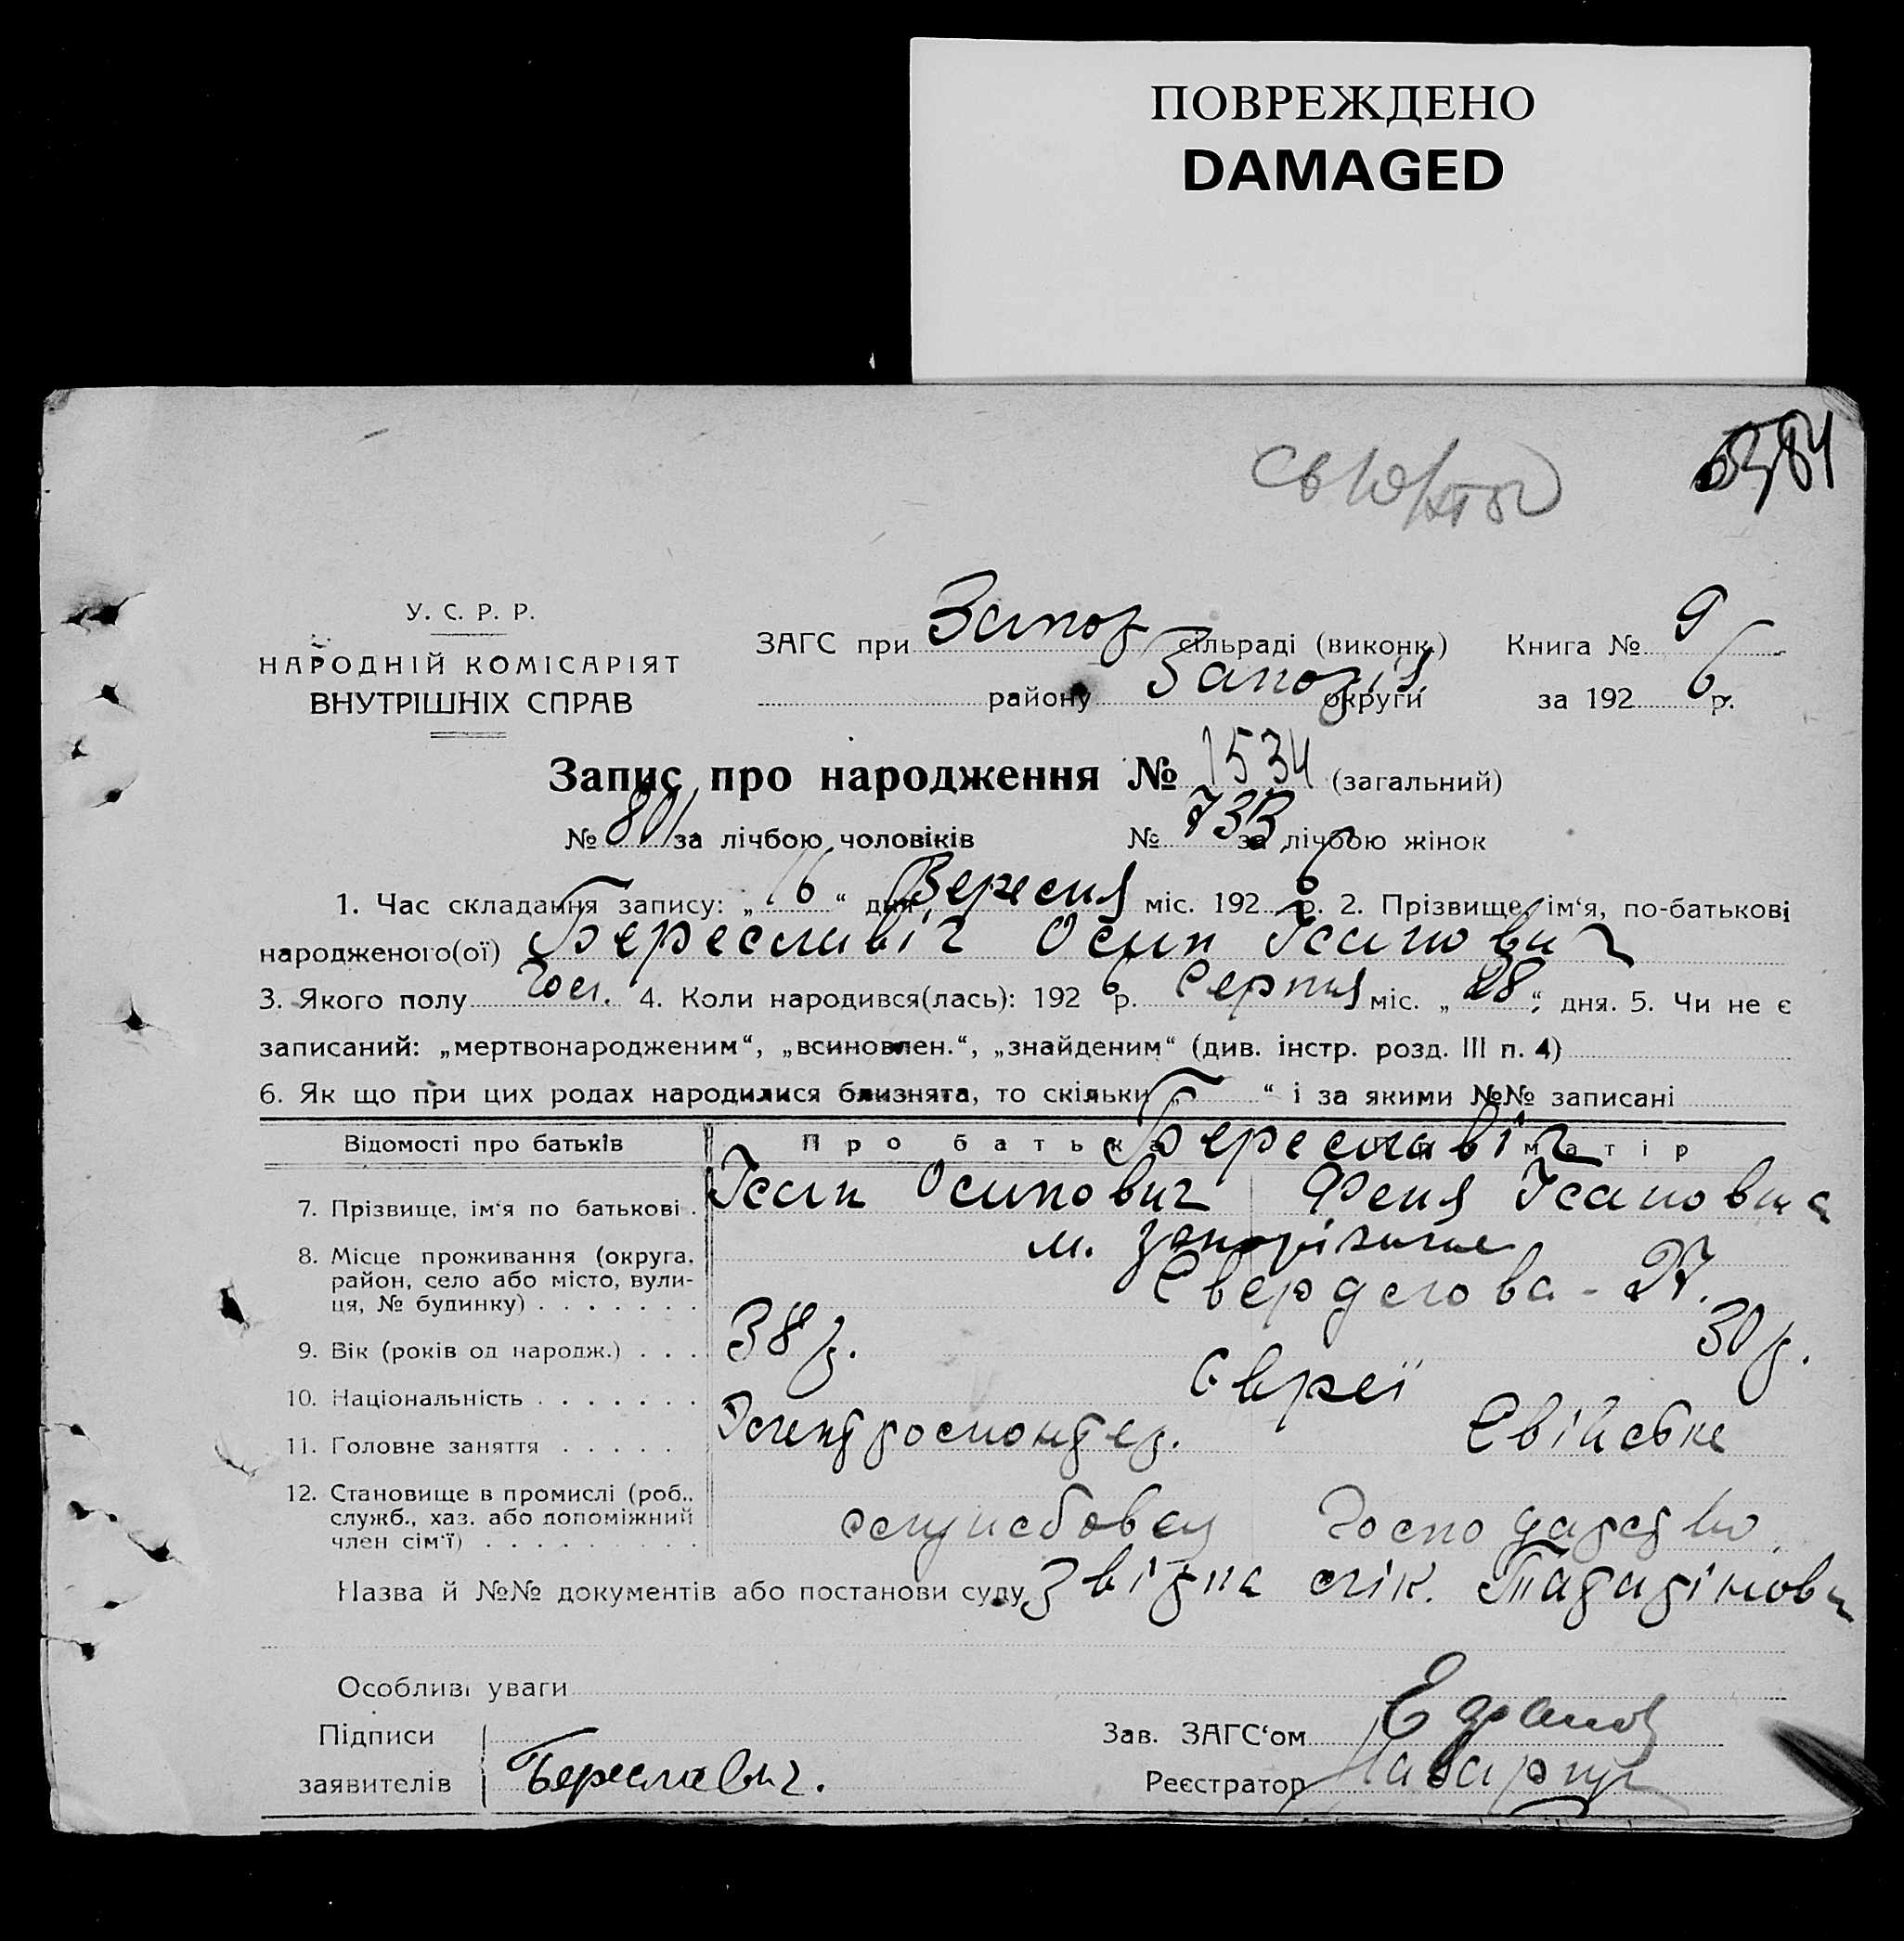 ПОВРЕЖДЕНО
DAMAGED
У. С. Р. Р.
НАРОДНІЙ КОМІСАРІЯТ
ВНУТРІШНІХ СПРАВ
ЗАГС при Запор сільраді (виконк.) Книга № 9
району Запоріз округи за 192 6 р.
Запис про народження № 1534 (загальний)
№ 801 за лічбою чоловіків № 733 за лічбою жінок
1. Час складання запису: „ 16 “ дня Вересня міс. 192 6 р. 2. Прізвище, ім‘я, по-батькові
народженого(ої) Береславіч Осип Ісапович
3. Якого полу Чол. 4. Коли народився(лась): 192 6 р. Серпня міс. „ 28 “ дня. 5. Чи не є
записаний: „мертвонародженим“, „всиновлен.“, „знайденим“ (див. інстр. розд. III п. 4)
6. Як що при цих родах народилися близнята, то скільки „ “ і за якими №№ записані
Відомості про батьків Про батька матір
Береславіч
7. Прізвище, ім‘я по батькові Осипович Феня
8. Місце проживання (округа, район, село або місто, вулиця, № будинку) м. Запоріжжя
Свердлова - 27.
9. Вік (років од народж.) 38 р. 30 р.
10. Національність Євреї
11. Головне заняття Свійське
12. Становище в промислі (роб., служб., хаз. або допоміжний член сім‘ї) службовец господарство
Назва й №№ документів або постанови суду Звідка лік.
Особливі уваги
Підписи Зав. ЗАГС‘ом
заявителів Береславич. Реєстратор